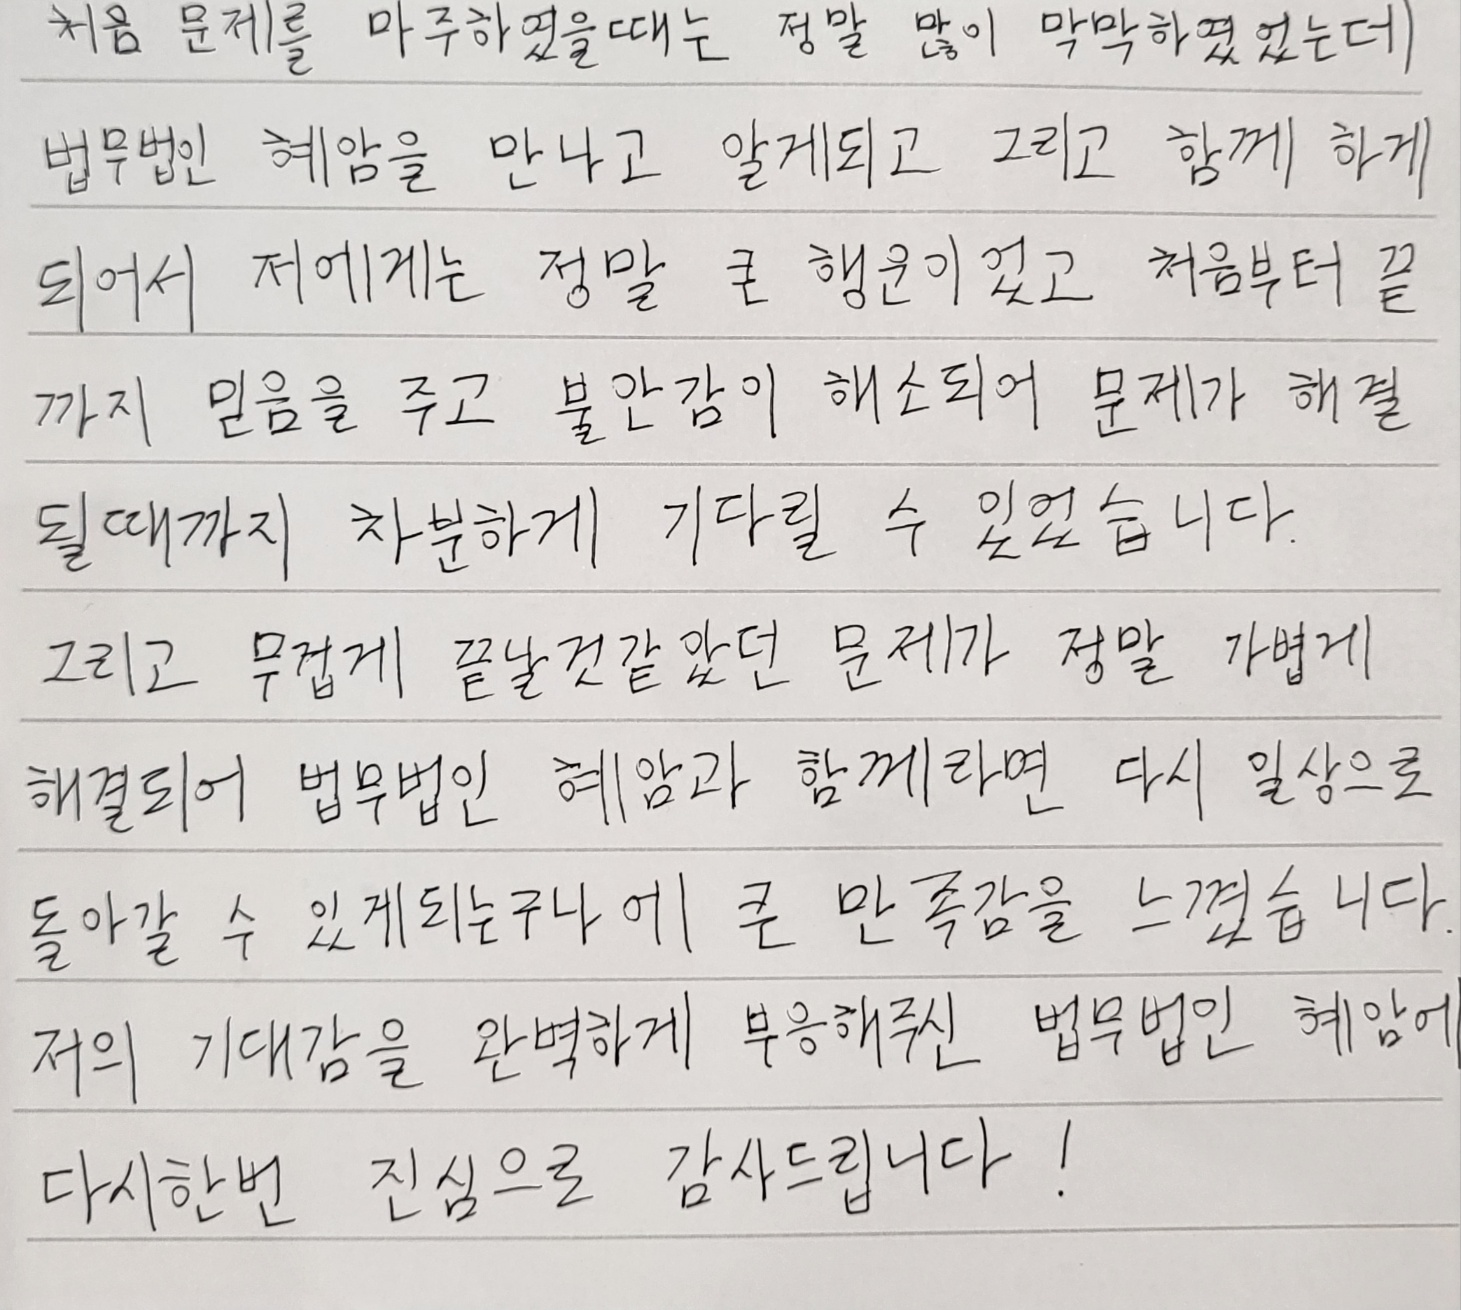 처음 문제를 마주하였을때는 정말 많이 막막하였었는데
법무법인 혜암을 만나고 알게되고 그리고 함께 하게
되어서 저에게는 정말 큰 행운이었고 처음부터 끝
까지 믿음을 주고 불안감이 해소되어 문제가 해결
될때까지 차분하게 기다릴 수 있었습니다.
그리고 무겁게 끝날것같았던 문제가 정말 가볍게
해결되어 법무법인 혜암과 함께라면 다시 일상으로
돌아갈 수 있게되는구나 에 큰 만족감을 느꼈습니다.
저의 기대감을 완벽하게 부응해주신 법무법인 혜암에
다시한번 진심으로 감사드립니다!